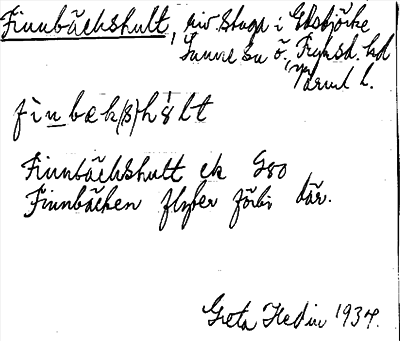 Finnbäckshult, riv. stuga i Ekobjörke
Sunne sn Ö., Fryksd. hd
Värml l.
fìnbæk(s)hɵ̀lt
Finnbäckshult ek G80
Finnbäcken flyter förbi där.
Greta Hedin 1934.